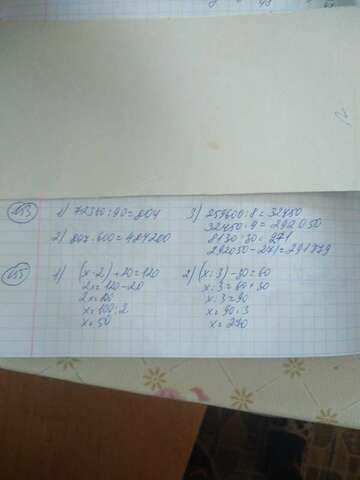 153
1) 72360:90=804
2) 807·600=484200
3) 259600:8=32450
32450·9=292050
8130:30=271
292050-271=291779
155
1) (x·2)+20=120
2x=120-20
2x=100
x=100:2
x=50
2) (x:3)-30=60
x:3=60+30
x:3=90
x=90·3
x=270